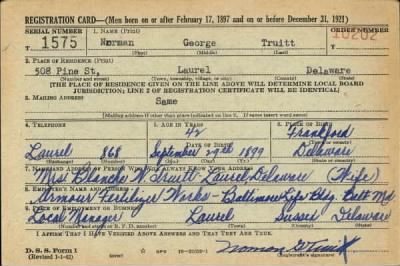 REGISTRATION CARD—(Men born on or after February 17, 1897 and on or before December 31, 1921)
SERIAL NUMBER 1. NAME (Print) ORDER NUMBER
T 1575 Norman George Truitt 10202
(First) (Middle) (Last)
2. PLACE OF RESIDENCE (Print)
508 Pine St, Laurel Delaware
(Number and street) (Town, township, village, or city) (County) (State)
[THE PLACE OF RESIDENCE GIVEN ON THE LINE ABOVE WILL DETERMINE LOCAL BOARD
JURISDICTION; LINE 2 OF REGISTRATION CERTIFICATE WILL BE IDENTICAL]
3. MAILING ADDRESS
Same
[Mailing address if other than place indicated on line 2. If same insert word same]
4. TELEPHONE 5. AGE IN YEARS 6. PLACE OF BIRTH
42 Frankford
DATE OF BIRTH Delaware
Laurel 868 September 29th 1899
(Exchange) (Number) (Mo.) (Day) (Yr.) (State or country)
7. NAME AND ADDRESS OF PERSON WHO WILL ALWAYS KNOW YOUR ADDRESS
Mrs Blanche W. Truitt Laurel Delaware (Wife)
8. EMPLOYER'S NAME AND ADDRESS
Armour Fertilizer Works - Baltimore Life Bldg. Balt Md
9. PLACE OF EMPLOYMENT OR BUSINESS
Local Manager Laurel Sussex Delaware
(Number and street or R. F. D. number) (Town) (County) (State)
I AFFIRM THAT I HAVE VERIFIED ABOVE ANSWERS AND THAT THEY ARE TRUE.
D. S. S. Form 1
(Revised 1-1-42) GPO Norman G Truitt
(Registrant's signature)